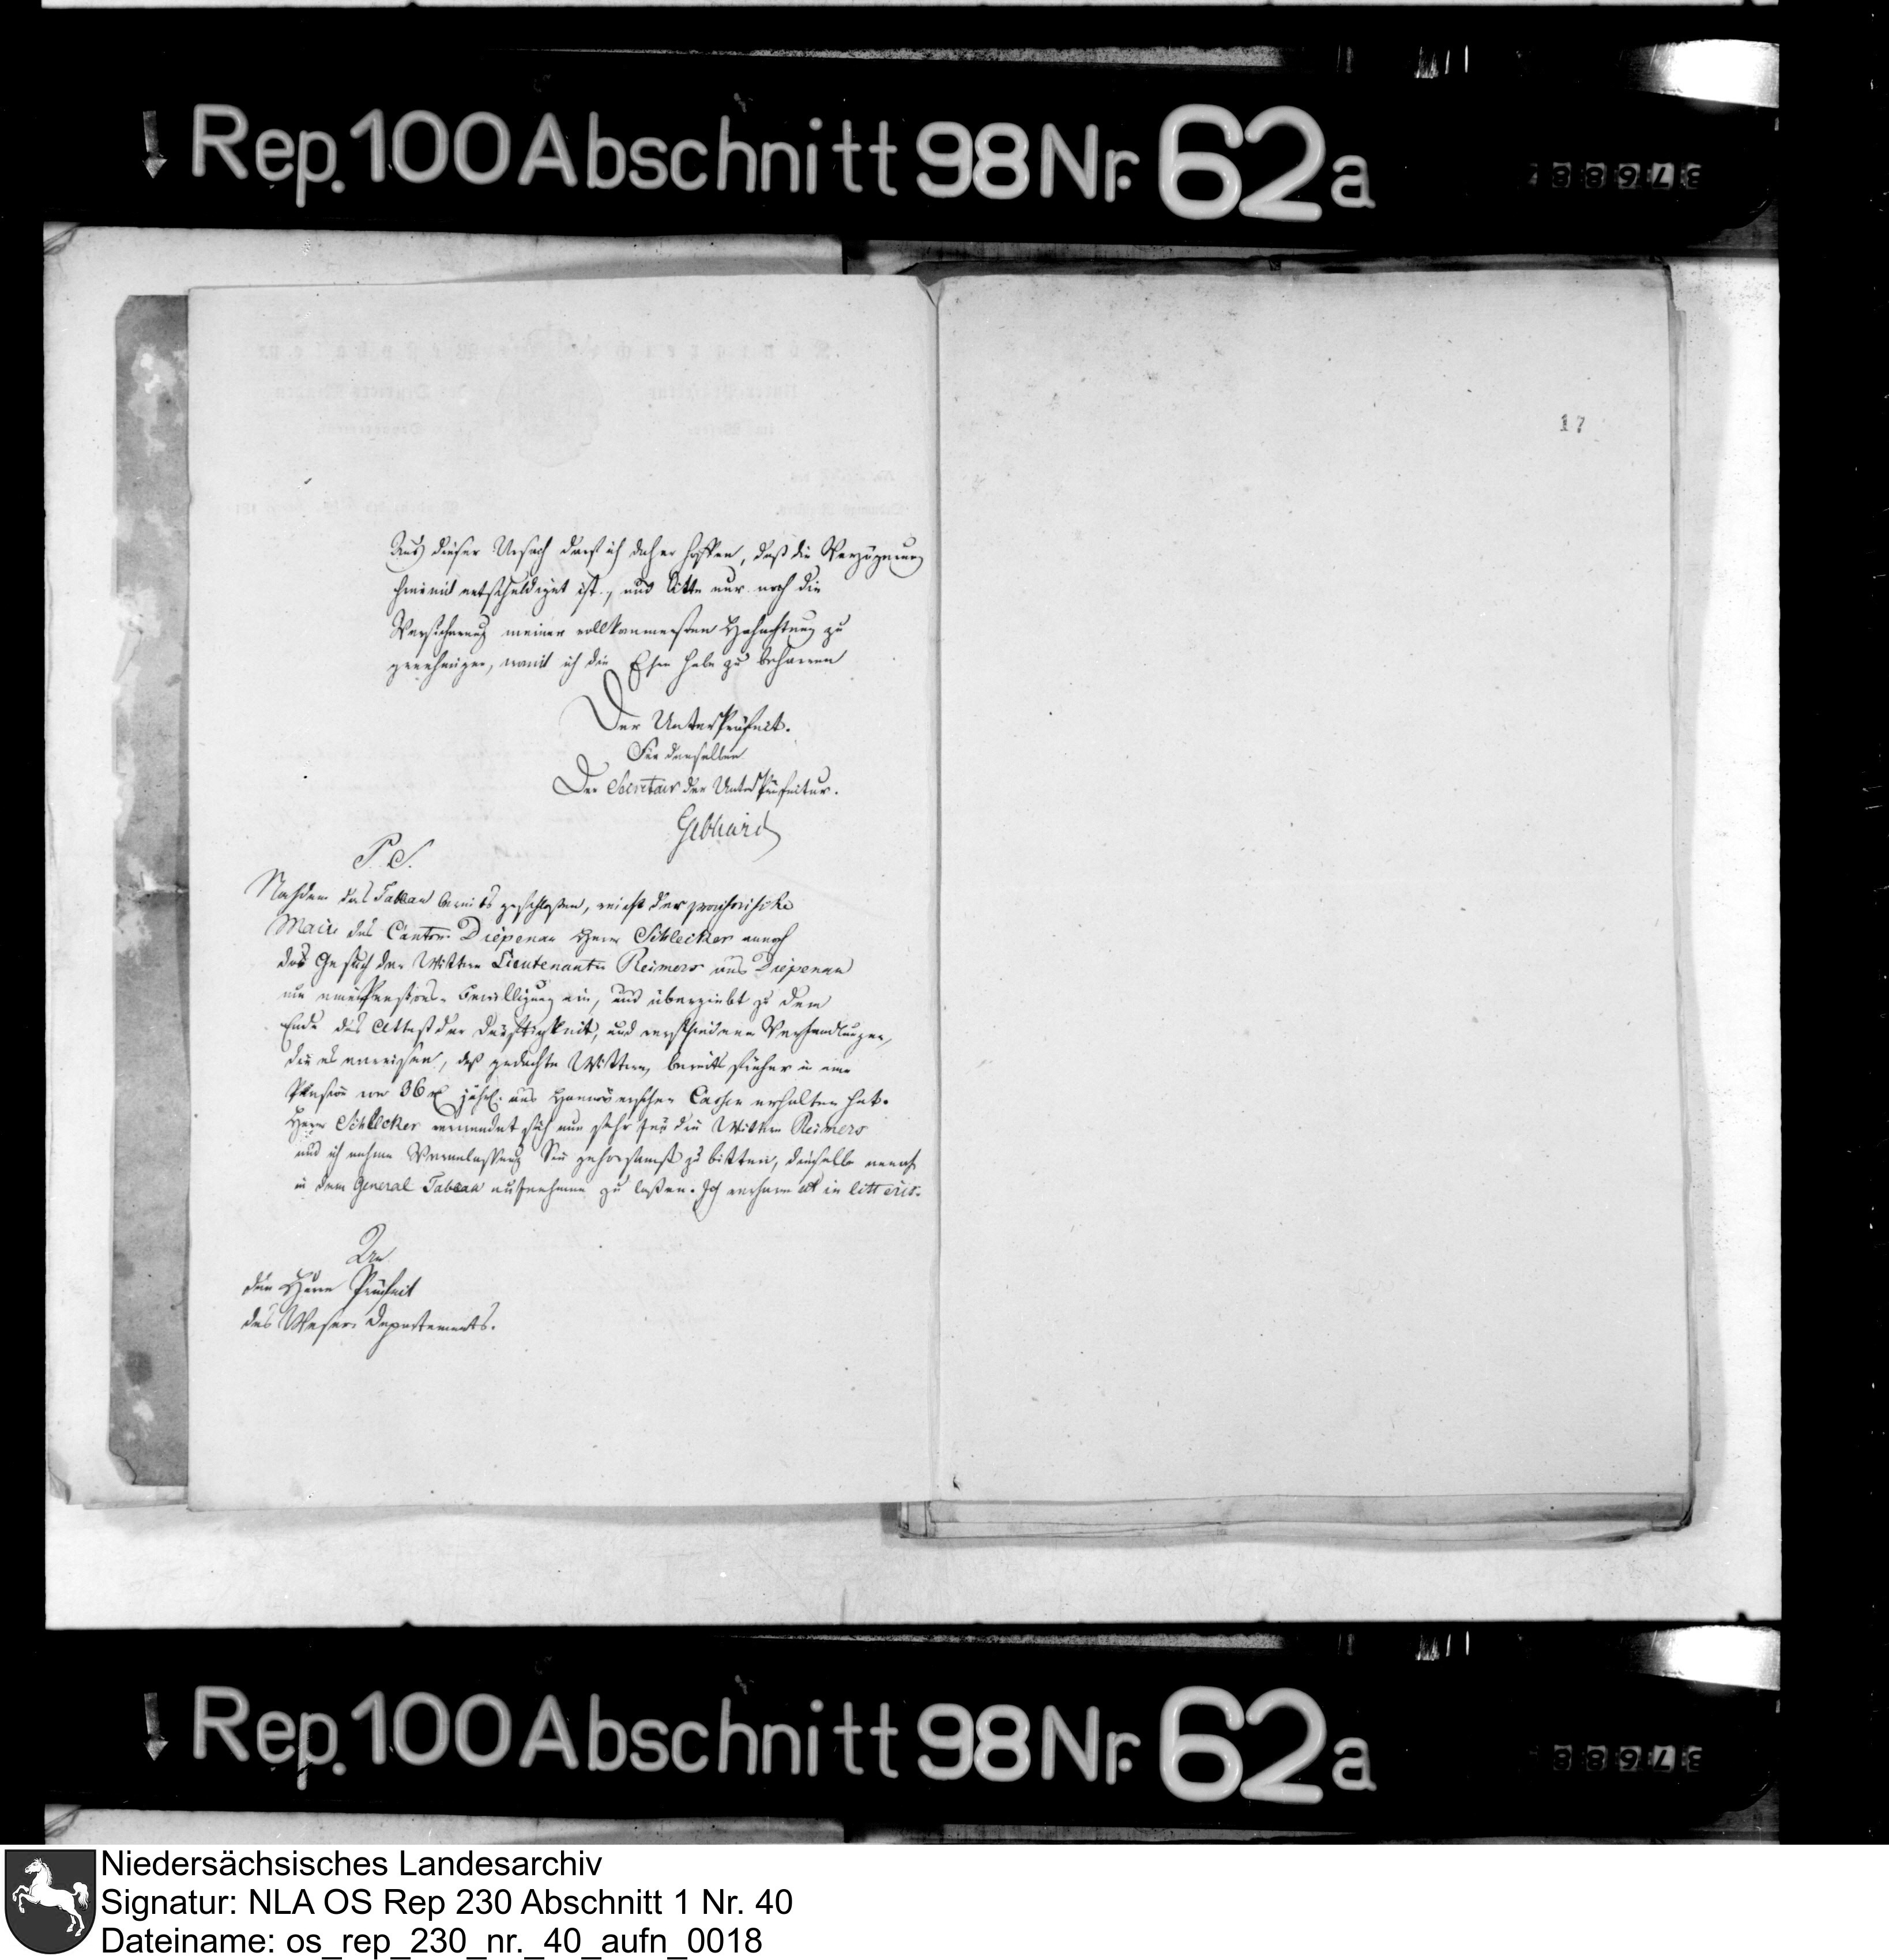 Rep. 100 Abschnitt 98 Nr. 62a
17
Aus dieser Ursach darf ich daher hoffen, daß die Verzögerung
hiemit entschuldiget ist, und bitte nur noch die
Versicherung meiner vollkommensten Hochachtung zu
genehmigen, womit ich die Ehre habe zu beharren
Der UnterPräfect.
Für denselben
Der Secretair der UnterPräfectur.
Gebhard
P. S.
Nachdem das Tableau bereits geschloßen, reicht der provisorische
Maire des Canton Diepenau Herr Schlecker annoch
das Gesuch der Wittwe Lieutenantin Reimers aus Diepenau
um eine Pensions-Bewilligung ein, und übergiebt zu dem
Ende das Attest der Dürftigkeit, und verschiedene Verhandlungen,
die es erweisen, daß gedachte Wittwe, bereits früher eine
Pension von 36 jährl. aus Hannöverscher Casse erhalten hat.
Herr Schlecker verwendet sich nun sehr für die Wittwe Reimers
und ich nehme Veranlassung Sie gehorsamst zu bitten, dieselbe annoch
in dem General Tableau aufnehmen zu laßen. Ich verharre ut in litteris.
An
den Herrn Präfect
des Weser Departements.
Rep. 100 Abschnitt 98 Nr. 62a
Niedersächsisches Landesarchiv
Signatur: NLA OS Rep 230 Abschnitt 1 Nr. 40
Dateiname: os_rep_230_nr._40_aufn_0018